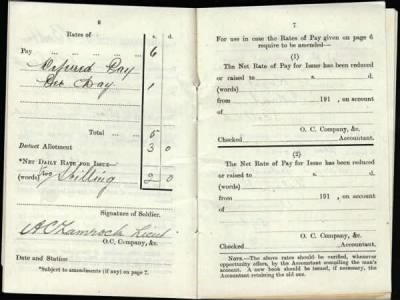 6
Rates of
s. d.
Pay ... ... ... ... 6
Deferred Pay
Per Day 1
Total ... 5
Deduct Allotment 3 0
*NET DAILY RATE FOR ISSUE
(words) Two Shilling 2 0
Signature of Soldier.
Lieut
O.C. Company, &c.
Date and Station
*Subject to amendments (if any) on page 7.
7
For use in case the Rates of Pay given on page 6
require to be amended—
(1)
The Net Rate of Pay for Issue has been reduced
or raised to s. d.
(words)
from 191 , on account
of
O. C. Company, &c.
Checked Accountant.
(2)
The Net Rate of Pay for Issue has been reduced
or raised to s. d.
(words)
from 191 , on account
of
O. C. Company, &c.
Checked Accountant.
NOTE.—The above rates should be verified, whenever
opportunity offers, by the Accountant compiling the man's
account. A new book should be issued, if necessary, the
Accountant retaining the old one.